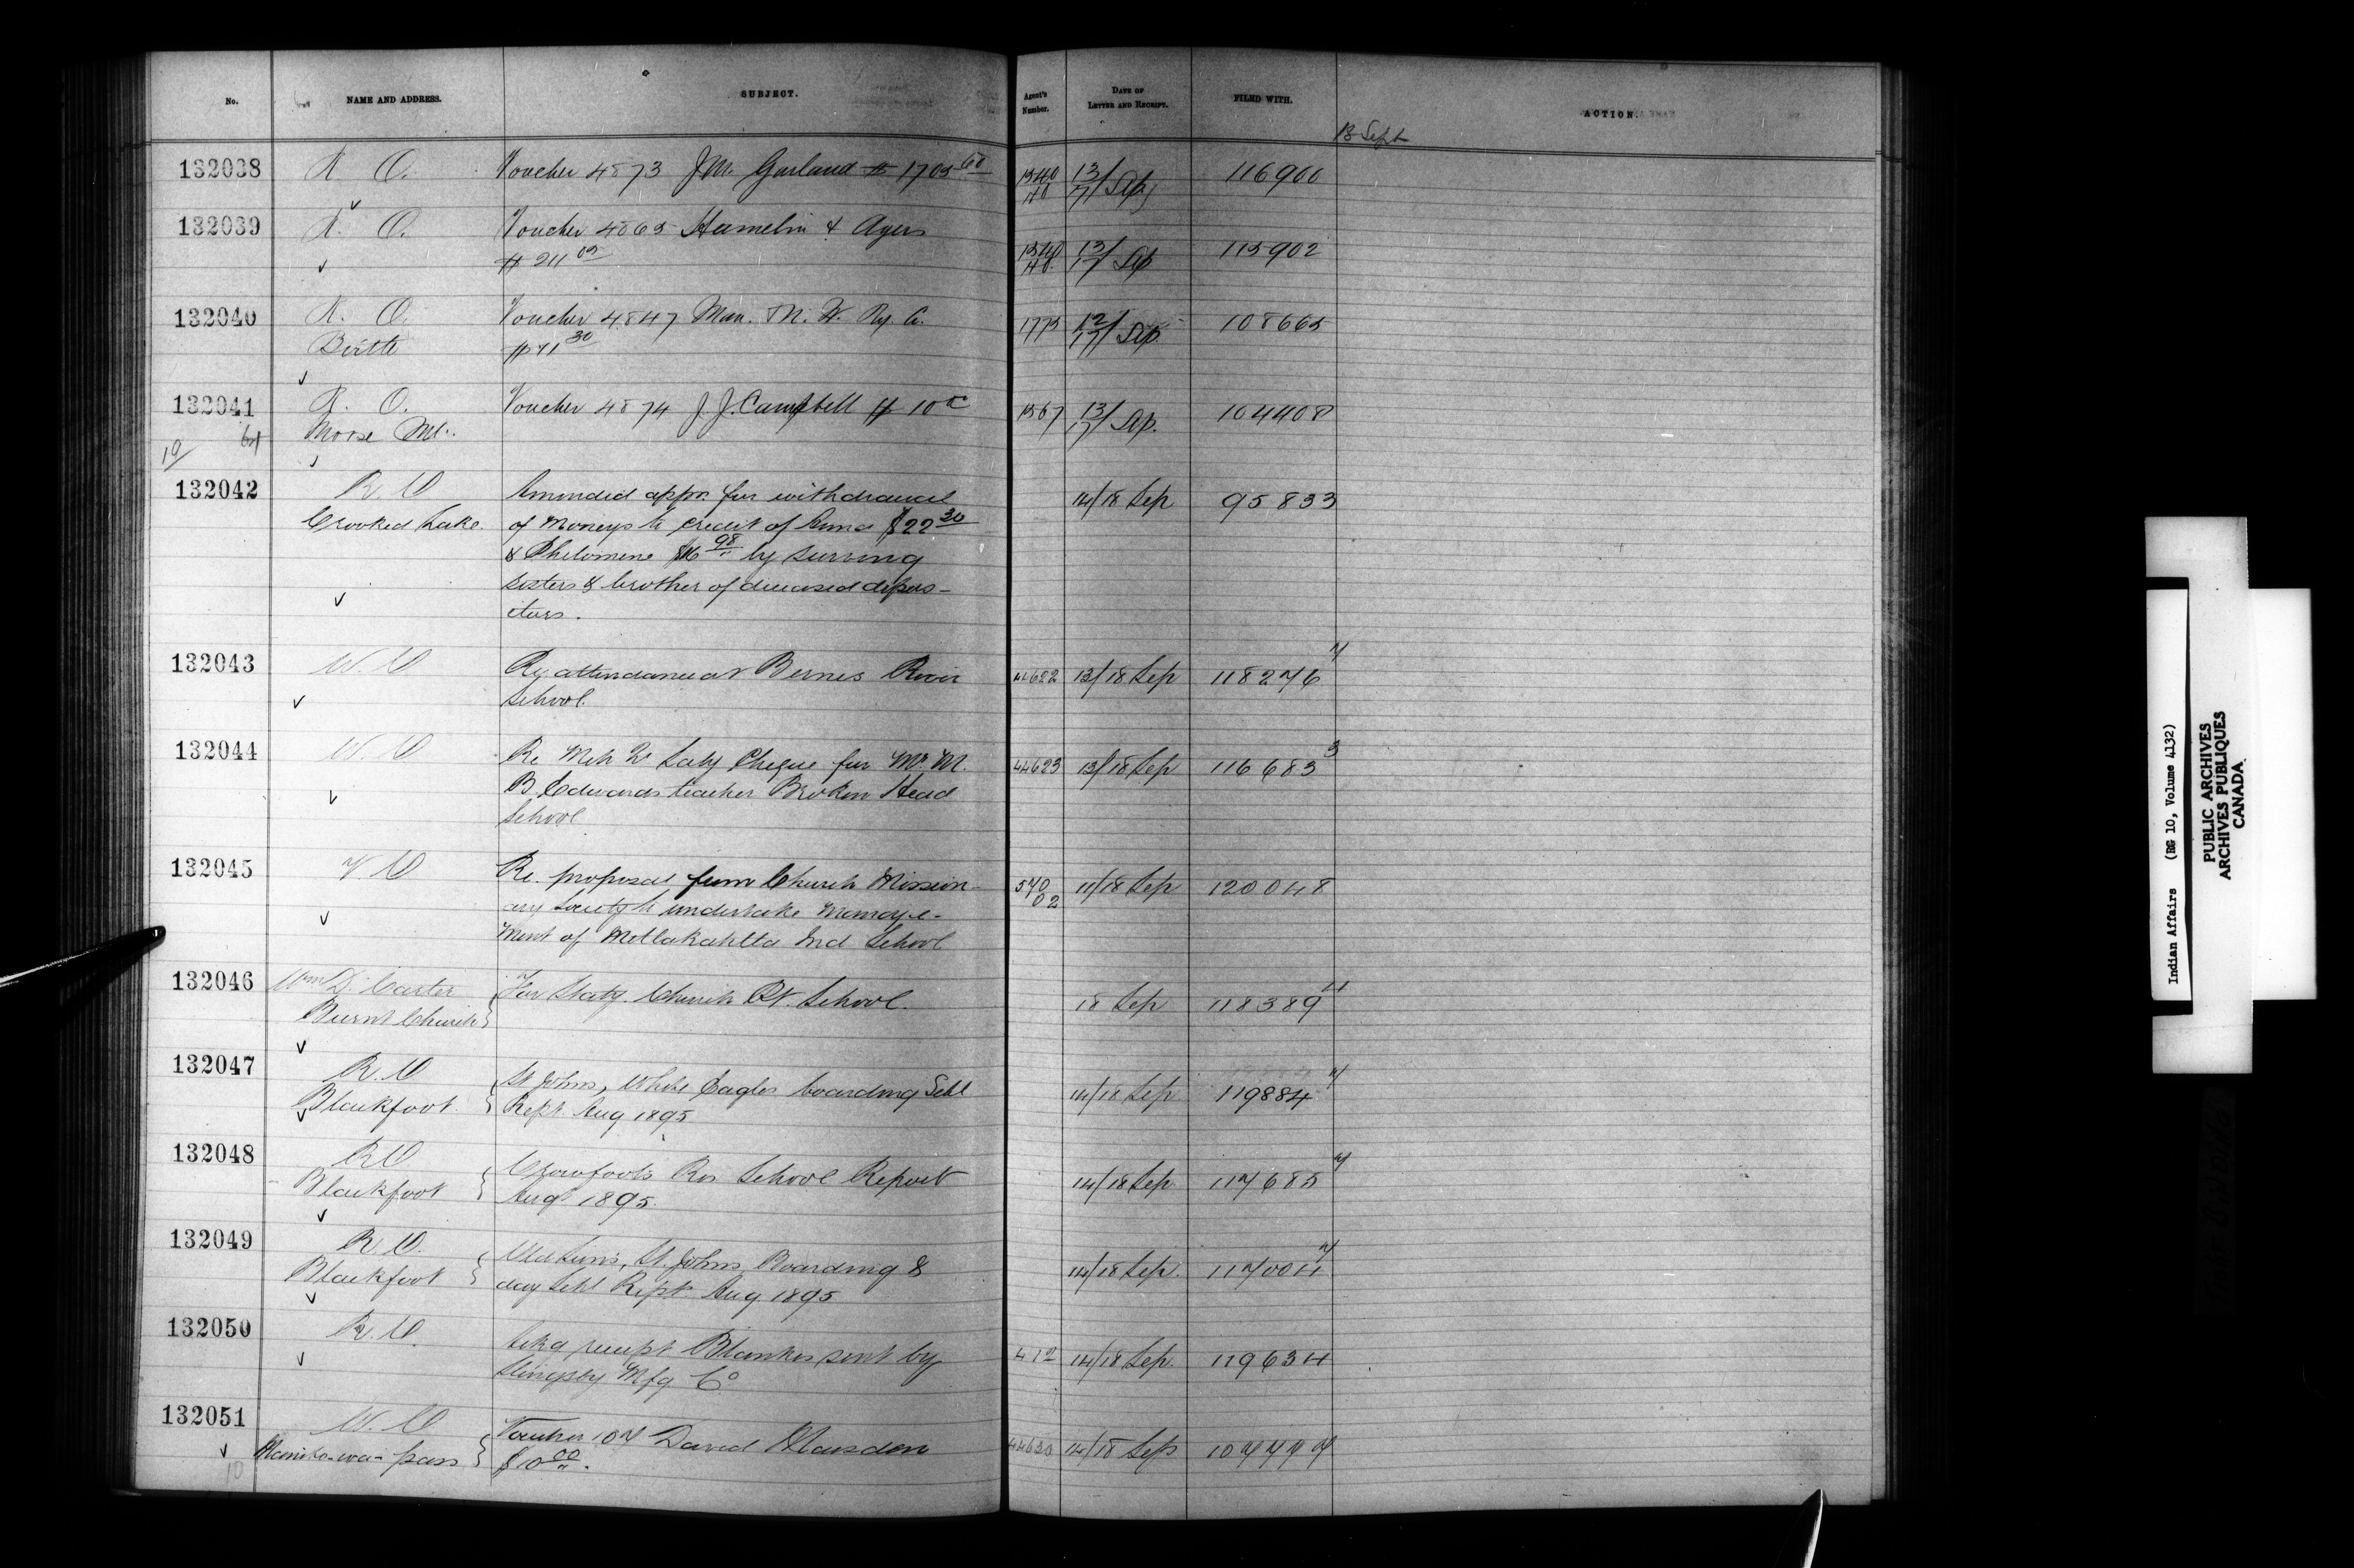 No. NAME AND ADDRESS. SUBJECT. Agent's Number. DATE OF LETTER AND RECEIPT. FILED WITH. ACTION.
18 Sept
132038 R. O. Voucher 4873 J.M. Garland $1705 60 1540 13/17 Sep 116900
132039 R. O. Voucher 4865 Hamelin & Ayers
$211 05 1540 13/17 Sep 115902
132040 R. O. Voucher 4847 Man. N. W. Ry. C. 1775 12/17 Sep. 108665
Birtle $71 30
132041 R. O. Voucher 4874 J. J. Campbell $10 1567 13/17 Sep. 104408
Moose Mt.
19/
132042 R. O Amended appn. for withdrawal 14/18 Sep 95833
Crooked Lake of moneys to credit of $22 30
& Philomene $16 98 by surviving
sisters & brother of deceased depos-
itors.
132043 W. O Re attendance at Berens River 44622 13/18 Sep 118276 7
School.
132044 W. O Re Meh qr Saly Cheque for Mr. M. 44623 13/18 Sep 116683 3
B Edwards teacher Broken Head
School
132045 V O Re. proposal from Church Mission- 570 02 11/18 Sep 120048
ary Society to undertake manage-
ment of Metlakahtla Ind School
132046 Wm D. Carter For Staty. Church Pt. School. 18 Sep 118389 4
Burnt Church
132047 R. O St Johns, White Eagles boarding Schl 14/18 Sep 119884 7
Blackfoot. Rept Aug 1895
132048 R O Crowfoots Res School Report 14/18 Sep 117685 7
Blackfoot Augt 1895.
132049 R. O. Old Suns, St. Johns Boarding & 14/18 Sep. 117004 7
Blackfoot day Schl Rept. Aug 1895
132050 R. O. Ackg receipt Blankets sent by 412 14/18 Sep. 119634
Slingsby Mfg Co
132051 W. O Voucher 107 David Marsden 44630 14/18 Sep 107477
Manito-wa-pass $10 00.
10
Indian Affairs (RG 10, Volume 4132)
PUBLIC ARCHIVES
ARCHIVES PUBLIQUES
CANADA